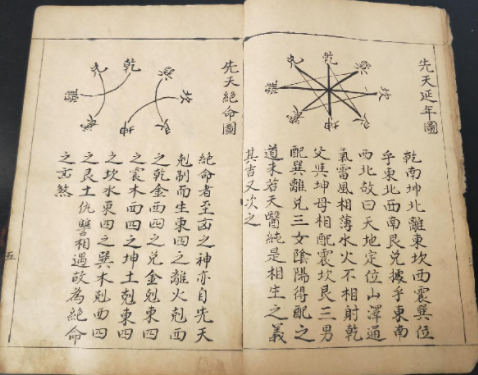 先天延年圖
乾
兌
巽
離
坎
震
艮
坤
乾南坤北離東坎西震巽位
乎東北西南艮兌據乎東南
西北故曰天地定位山澤通
氣雷風相薄水火不相射乾
父與坤母相配震坎艮三男
配巽離兌三女陰陽得配之
道未若天醫純是相生之義
其吉又次之
先天絕命圖
乾
兌
巽
離
坎
震
艮
坤
絕命者至凶之神亦自先天
剋制而生東四之離火剋西
之乾金西四之兌金剋東四
之震木西四之坤土剋東四
之坎水東四之巽木剋西四
之艮土仇讐相遇故為絕命
之凶煞
五